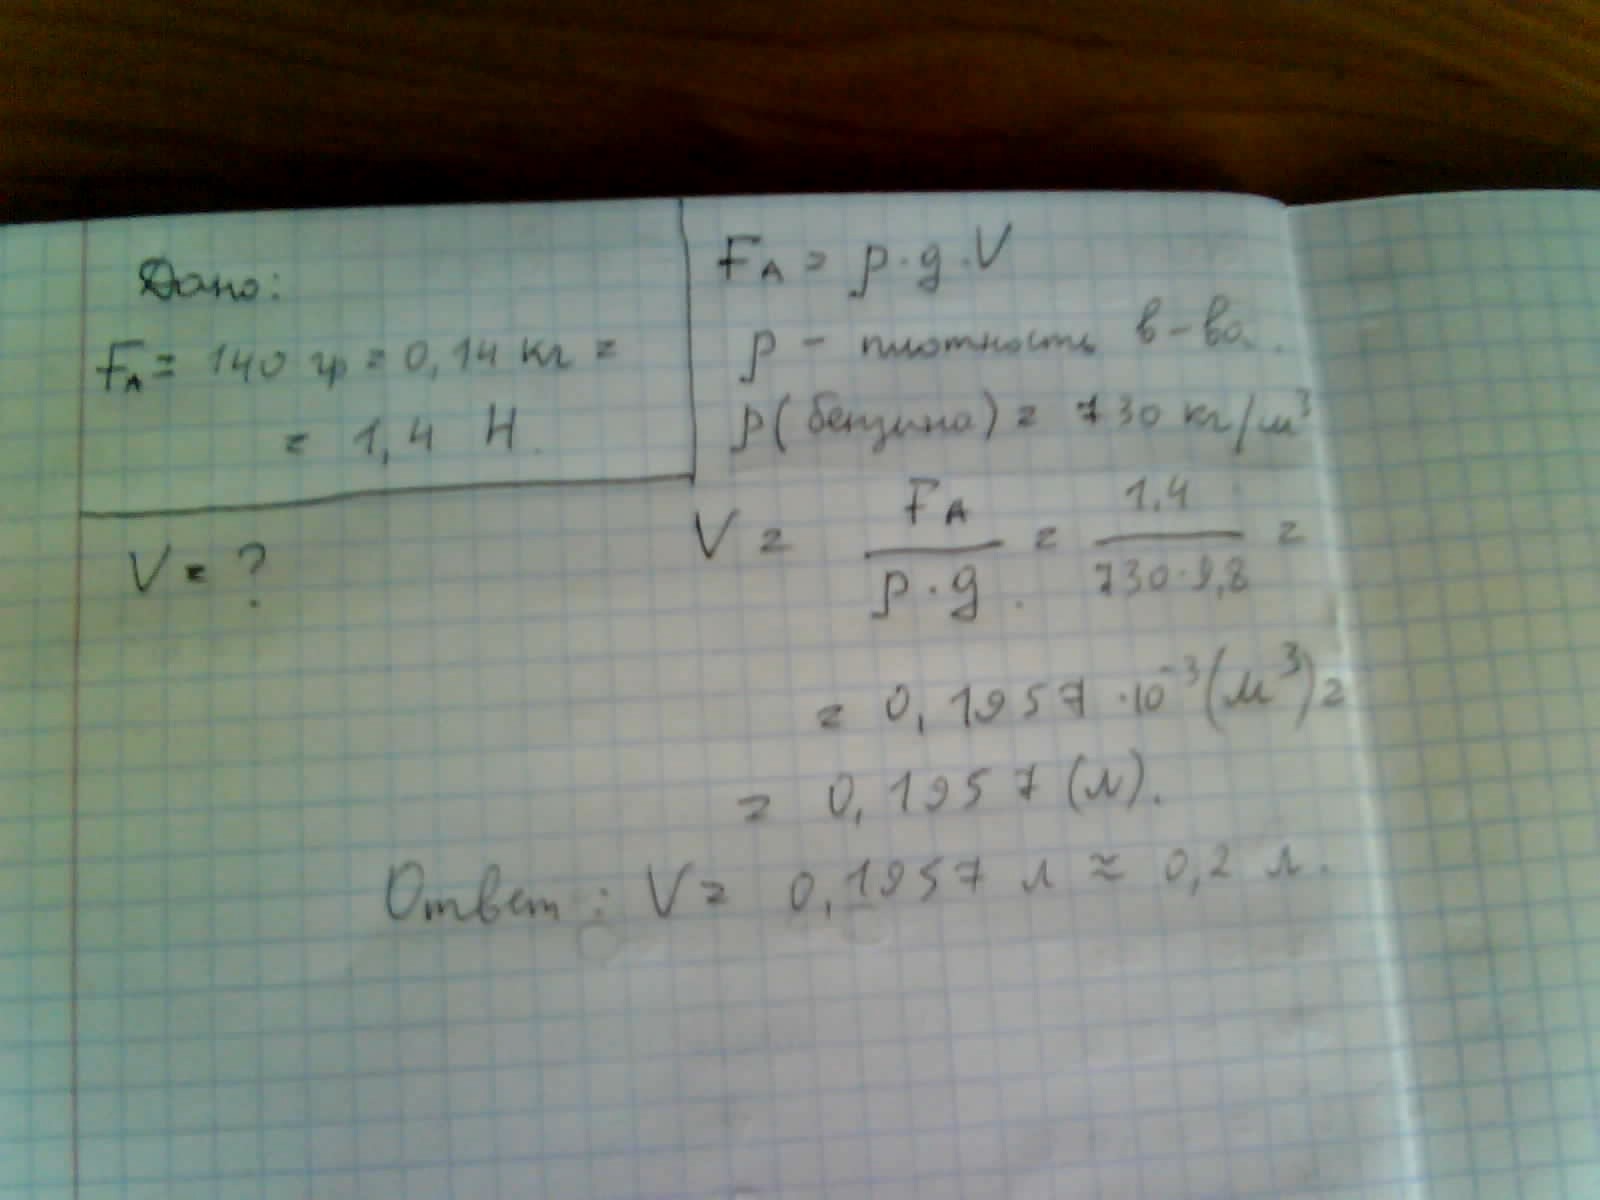 Дано:
F_A = 140 гр = 0,14 кг =
= 1,4 Н.
V = ?
F_A = ρ·g·V
ρ – плотность в-ва.
ρ(бензина) = 730 кг/м³
V = F_A / ρ·g = 1,4 / 730·9,8 =
= 0,1957·10⁻³(м³) =
= 0,1957 (л).
Ответ: V = 0,1957 л ≈ 0,2 л.